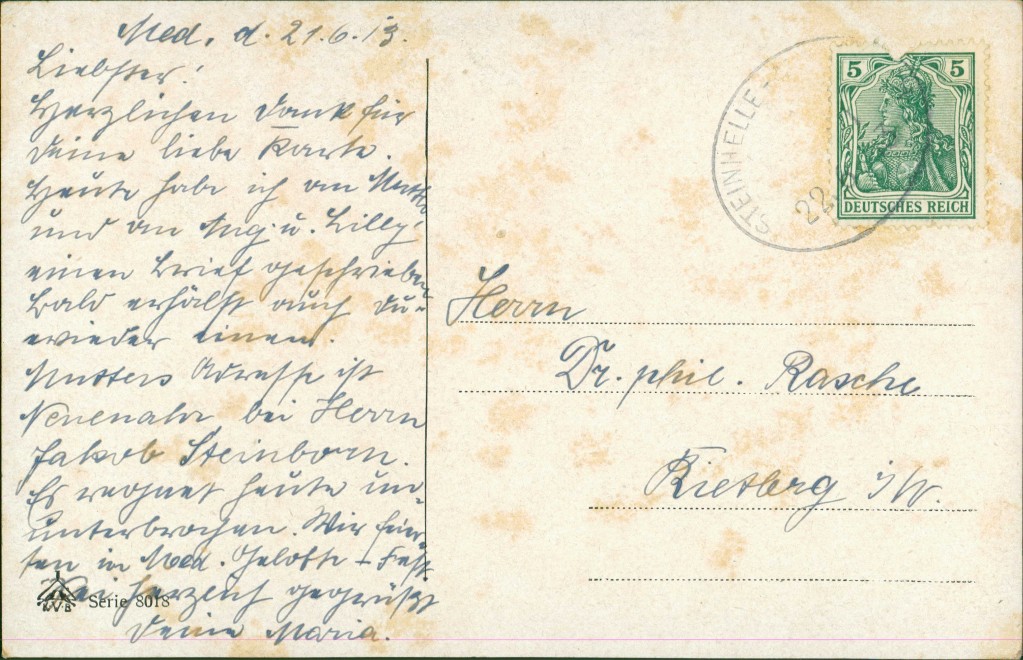 Med. d. 21.6.13.
Liebster!
Herzlichen Dank für
Deine liebe Karte.
Heute habe ich an Mutter
und an Aug. u. Lilly
einen Brief geschrieben
Bald erhälst auch Du
wieder einen.
Mutters Adresse ist
Neuenahr bei Herrn
Jakob Steinborn.
Es regnet heute un-
unterbrochen. Wir feier
ten in Med. Gelobte + Fest
Sei herzlich gegrüßt
Deine Maria.
Serie 8018
STEINHELLE-
22
5 5
DEUTSCHES REICH
Herrn
Dr. phil. Rasche
Rietberg i/W.